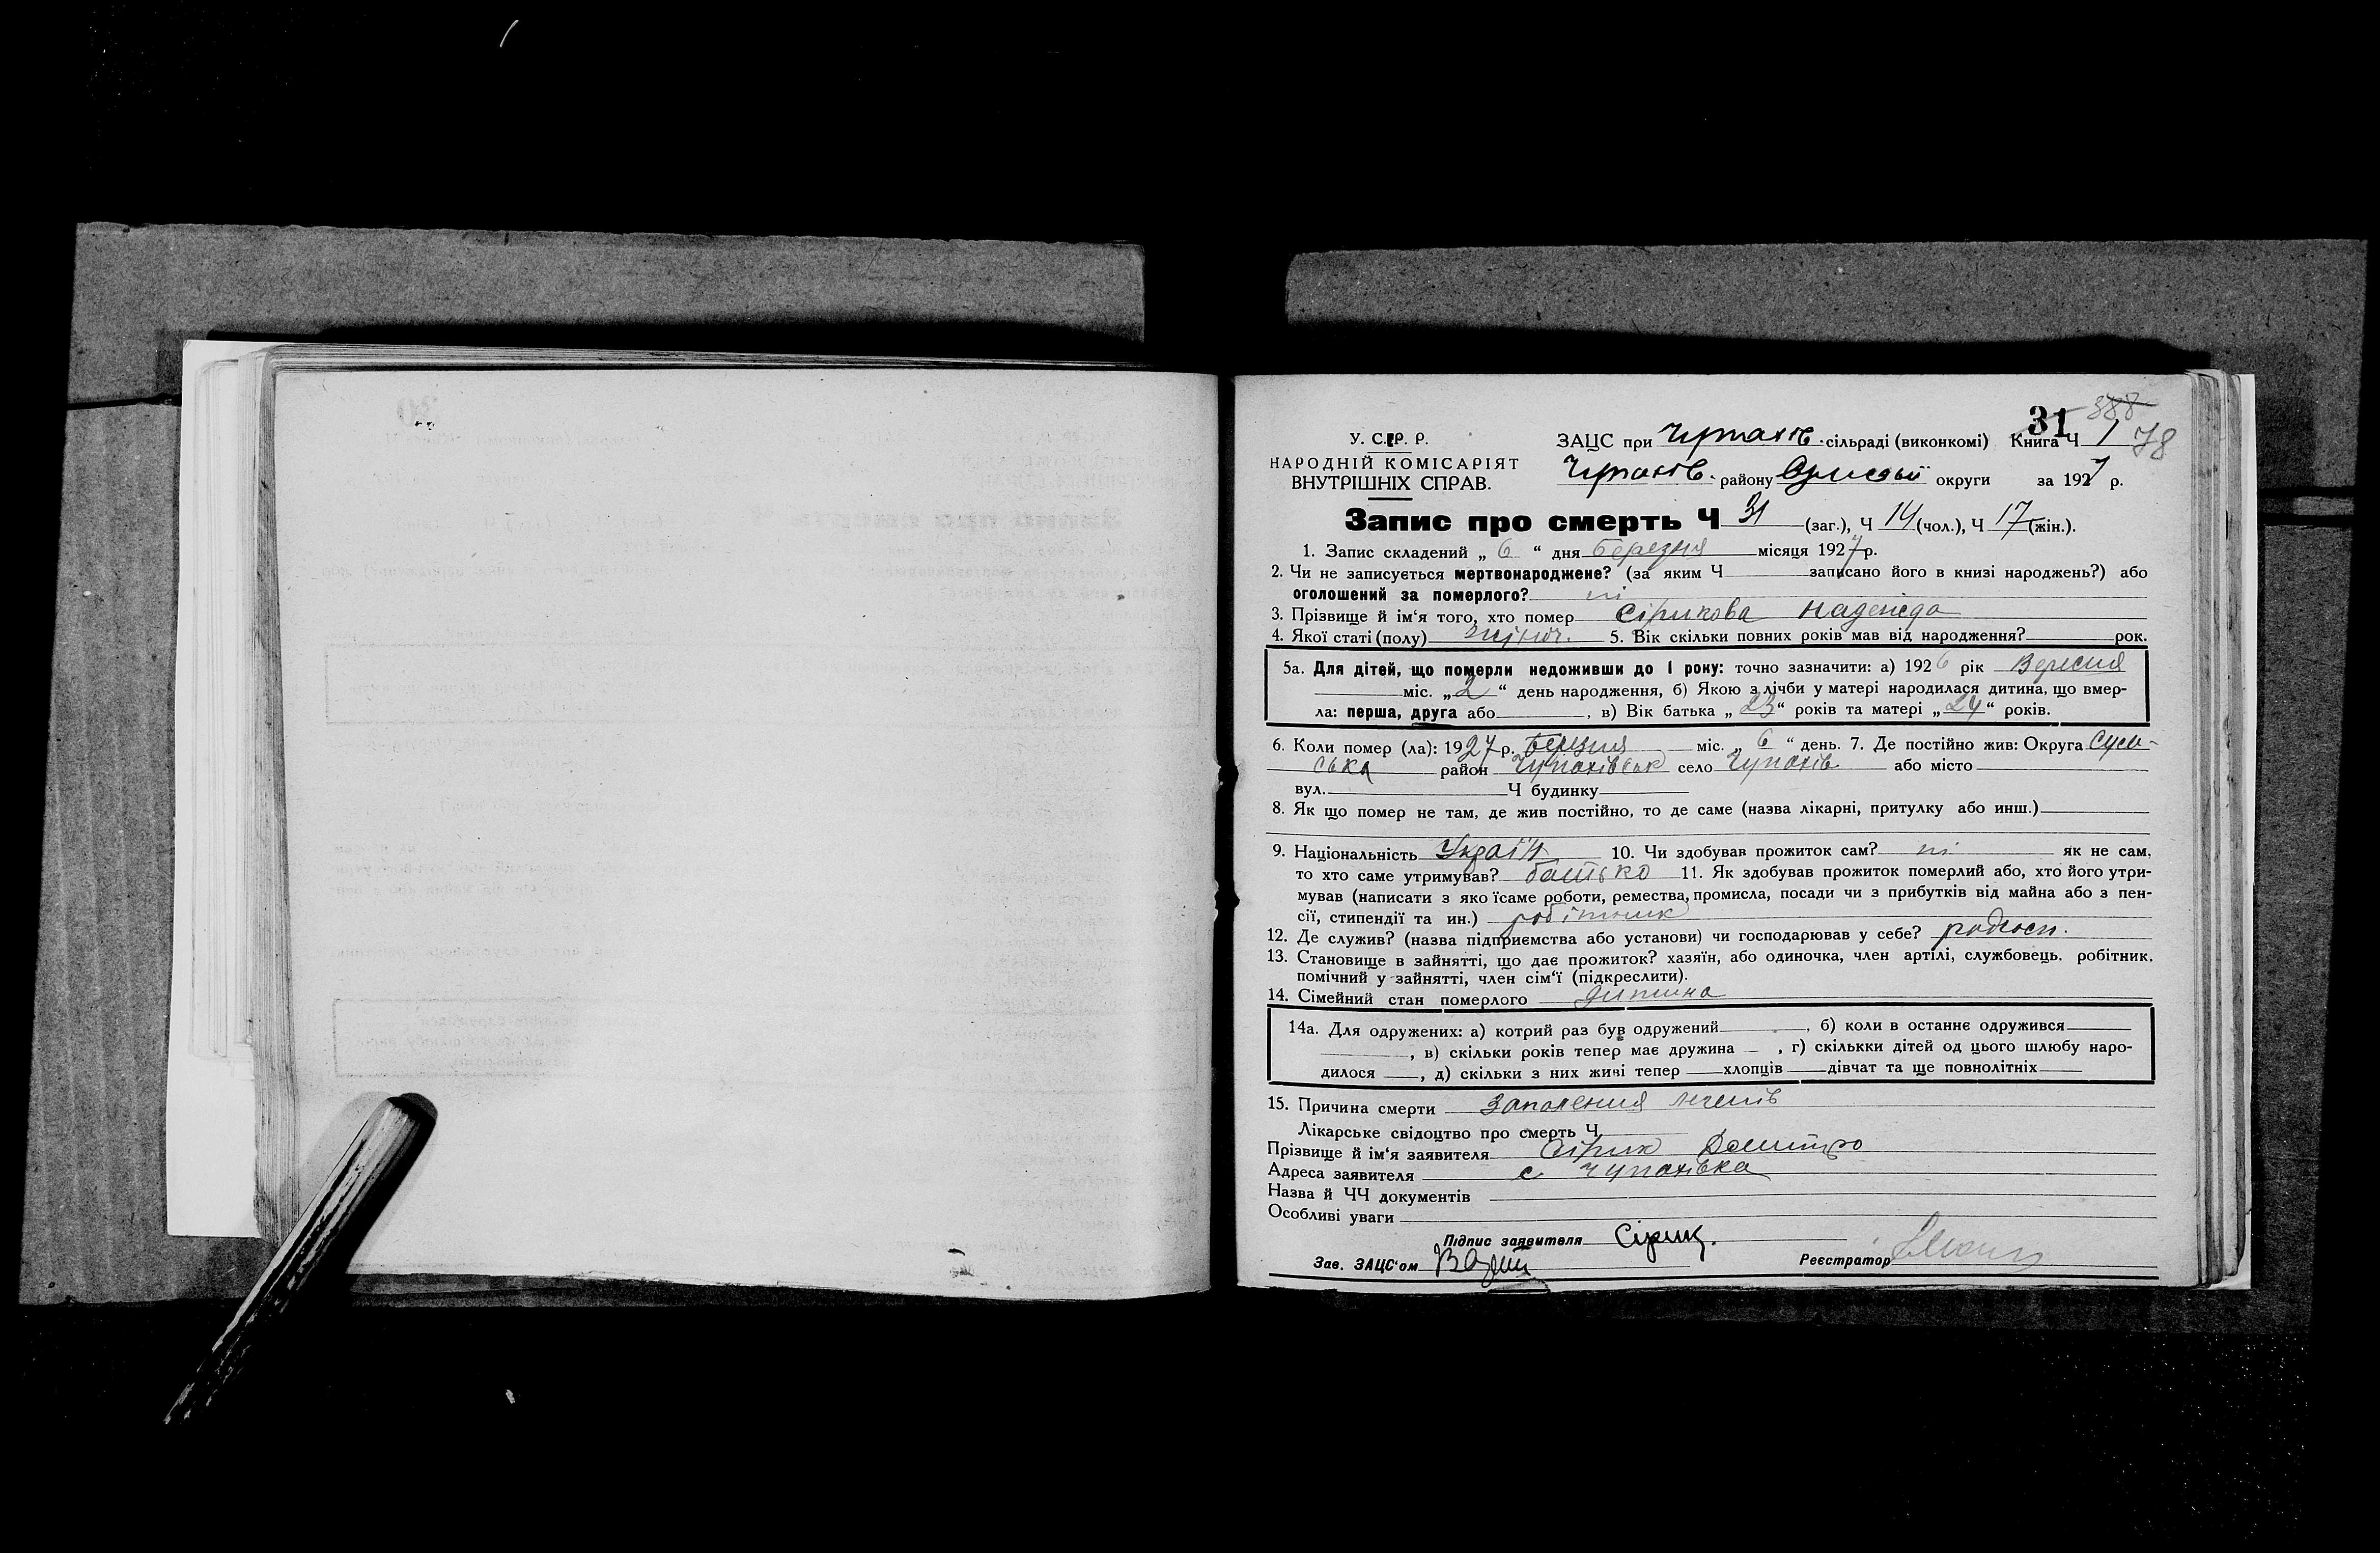 31 388
78
У. С. Р. Р.
НАРОДНІЙ КОМІСАРІЯТ
ВНУТРІШНІХ СПРАВ.
ЗАЦС при Чупахів. сільраді (виконкомі) Книга Ч 1
Чупахів. району Сумської округи за 1927 р.
Запис про смерть Ч 31 (заг.), Ч 14 (чол.), Ч 17 (жін.).
1. Запис складений „ 6 “ дня березня місяця 1927 р.
2. Чи не записується мертвонароджене? (за яким Ч записано його в книзі народжень?) або
оголошений за померлого? ні
3. Прізвище й ім‘я того, хто помер Сірикова Надежда
4. Якої статі (полу) жіноч. 5. Вік скільки повних років мав від народження? рок.
5а. Для дітей, що померли недоживши до 1 року: точно зазначити: а) 1926 рік Вересня
міс. „ 2 “ день народження, б) Якою з лічби у матері народилася дитина, що вмер-
ла: перша, друга або , в) Вік батька „ 23 “ років та матері „ 24 “ років.
6. Коли помер (ла): 1927 р. березня міс. „ 6 “ день. 7. Де постійно жив: Округа Сум-
ська район Чупахівськ село Чупахів або місто
вул. Ч будинку
8. Як що помер не там, де жив постійно, то де саме (назва лікарні, притулку або инш.)
9. Національність Україн 10. Чи здобував прожиток сам? ні як не сам,
то хто саме утримував? батько 11. Як здобував прожиток померлий або, хто його утри-
мував (написати з яко їсаме роботи, ремества, промисла, посади чи з прибутків від майна або з пен-
сії, стипендії та ин.) робітник
12. Де служив? (назва підприємства або установи) чи господарював у себе? радгосп.
13. Становище в зайнятті, що дає прожиток? хазяїн, або одиночка, член артілі, службовець, робітник,
помічний у зайнятті, член сім‘ї (підкреслити).
14. Сімейний стан померлого дитина
14а. Для одружених: а) котрий раз був одружений , б) коли в останнє одружився
, в) скільки років тепер має дружина , г) скількки дітей од цього шлюбу наро-
дилося , д) скільки з них живі тепер хлопців дівчат та ще повнолітніх
15. Причина смерти Запалення легенів
Лікарське свідоцтво про смерть Ч
Прізвище й ім‘я заявителя Сірик Домитро
Адреса заявителя с Чупахівка
Назва й ЧЧ документів
Особливі уваги
Підпис заявителя Сірик.
Зав. ЗАЦС‘ом Реєстратор